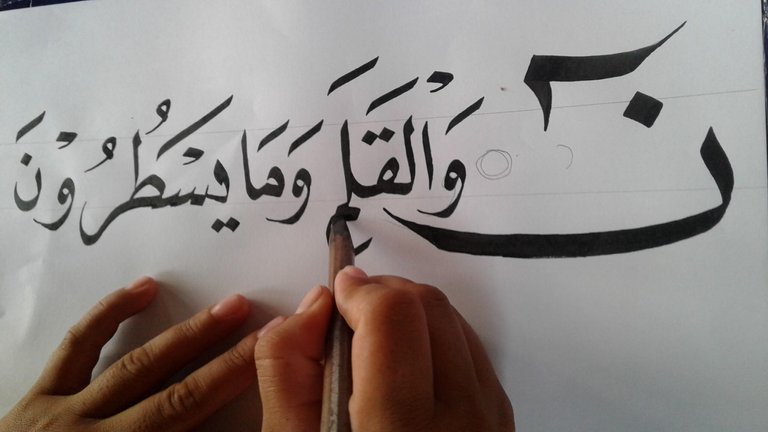 نۤ وَالْقَلَمِ وَمَا يَسْطُرُوْنَ